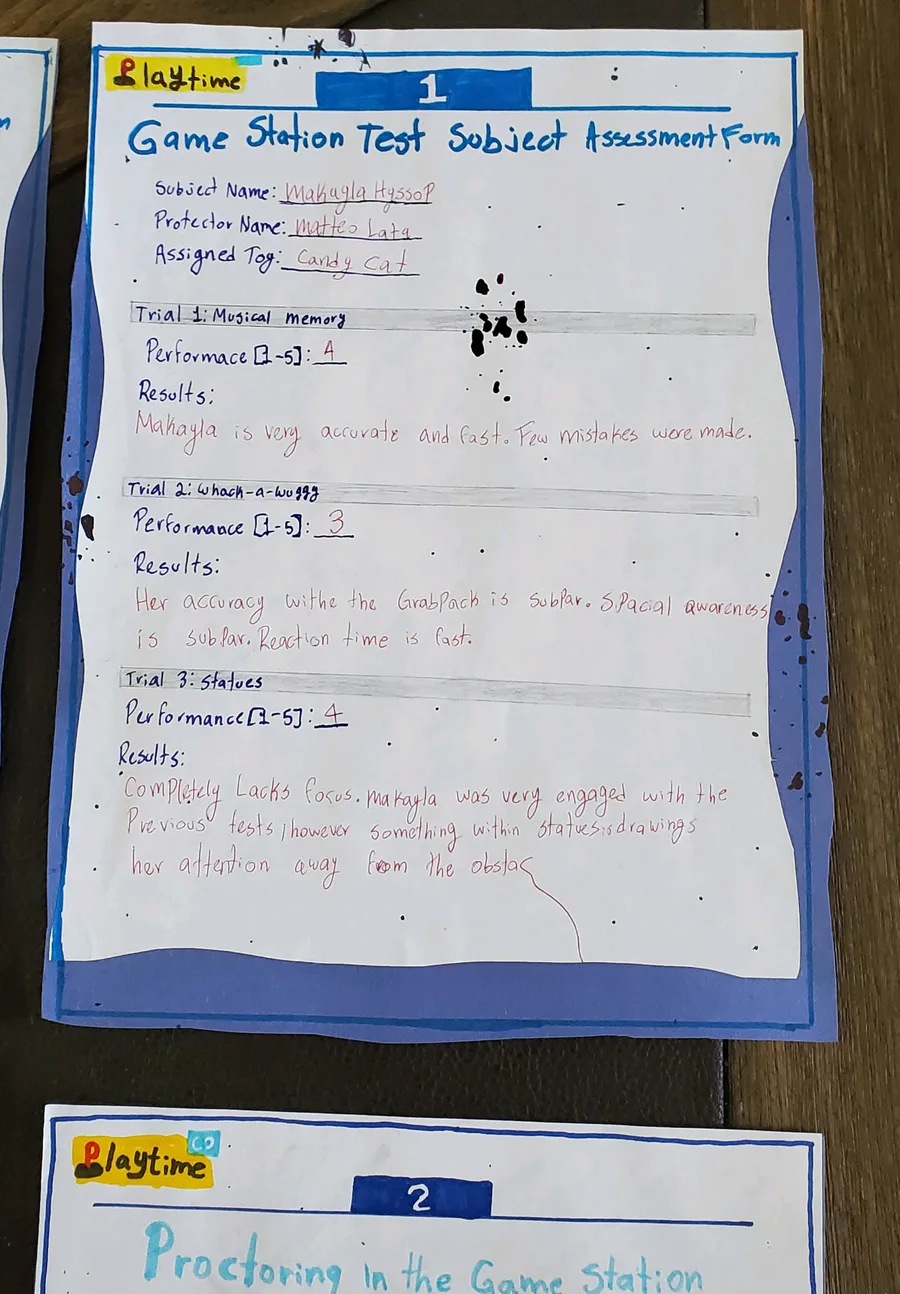 Playtime
1
Game Station Test Subject Assessment Form
Subject Name: Makayla Hyssop
Protector Name: Matteo Lata
Assigned Toy: Candy Cat
Trial 1: Musical memory
Performace [1-5]: 4
Results:
Makayla is very accurate and fast. Few mistakes were made.
Trial 2: Whack-a-wuggy
Performance [1-5]: 3
Results:
Her accuracy withe the GrabPack is subpar. Spacial awareness
is subpar. Reaction time is fast.
Trial 3: Statues
Performance [1-5]: 4
Results:
Completely Lacks focus. Makayla was very engaged with the
Previous tests, however something within statues is drawings
her attention away from the obstac
Playtime CO
2
Proctoring in the Game Station